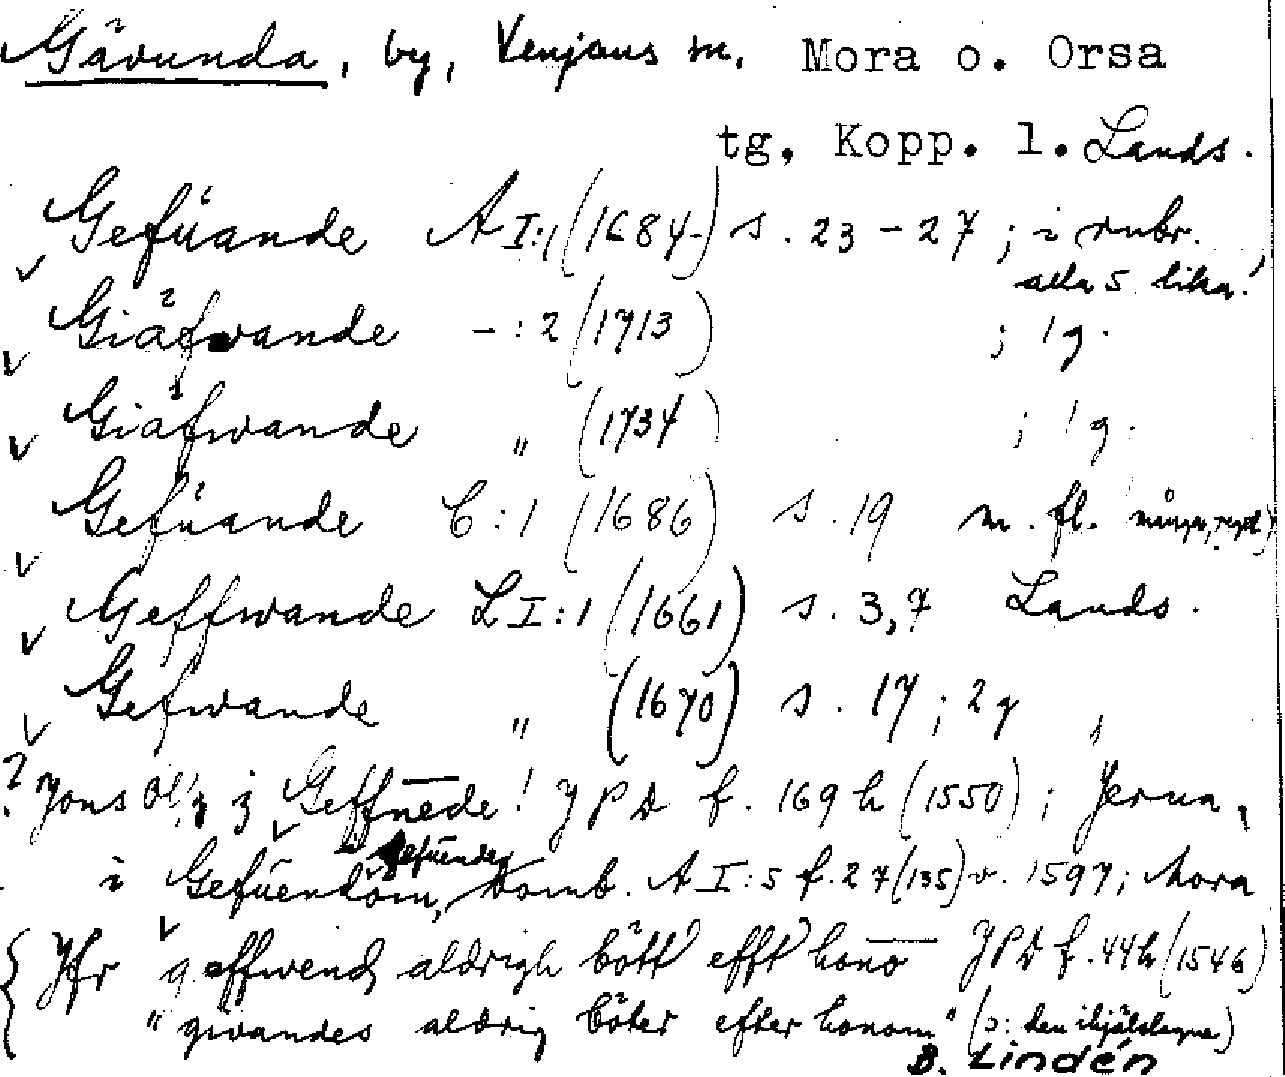 Gävunda, by, Venjans sn. Mora o. Orsa
tg, Kopp. l. Lands.
Gefúande A I:1 (1684) s. 23-27 ; i rubr.
alla 5 lika!
Giäfwande -:2 (1713) ; 1 g.
Giäfwande " (1734) ; 1 g.
Gefúande C:1 (1686) s. 19 m. fl.
Geffwande L I:1 (1661) s. 3,7 Lands.
Gefwande " (1670) s. 17 ; 2 g "
? Jons Ol'z j Geffnede! JPD f. 169 h (1550) ; Jerna,
i Gefúendom, Gefúende Domb. A I:5 f. 27 (135) v. 1597; Mora
Jfr geffwend aldrigh bött efft hono JPD f. 44 h (1546)
"givandes aldrig böter efter honom" (ɔ: den ihjälslagne)
B. Lindén